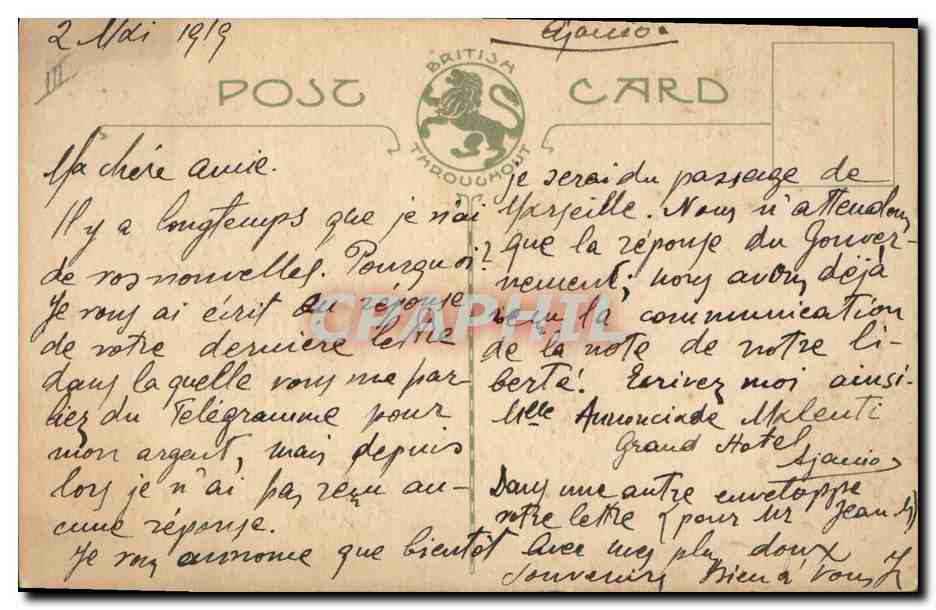 2 Mai 1919
Ajaccio.
III
POST CARD
BRITISH
THROUGHOUT
Ma chère amie.
Il y a longtemps que je n'ai
de vos nouvelles. Pourquoi?
Je vous ai écrit en réponse
de votre dernière lettre
dans laquelle vous me par-
liez du Telégramme pour
mon argent, mais depuis
lors je n'ai pas reçu au-
cune réponse.
Je vous annonce que bientôt
je serai du passage de
Marseille. Nous n'attendons
que la réponse du Gouver-
nement, nous avons déjà
reçu la communication
de la note de notre li-
berté! Ecrivez moi ainsi.
Mlle Annonciade
Grand Hotel
Ajaccio
Dans une autre enveloppe
votre lettre (pour Mr Jean M)
Avec mes plus doux
souvenirs Bien à vous J
CPAPHIL